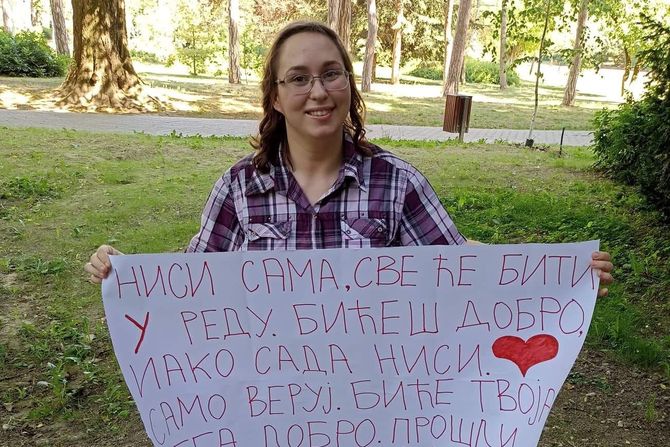 НИСИ САМА, СВЕ ЋЕ БИТИ
У РЕДУ. БИЋЕШ ДОБРО,
ИАКО САДА НИСИ.
САМО ВЕРУЈ. БИЋЕ ТВОЈА
ДОБРО. ПРОШЛИ